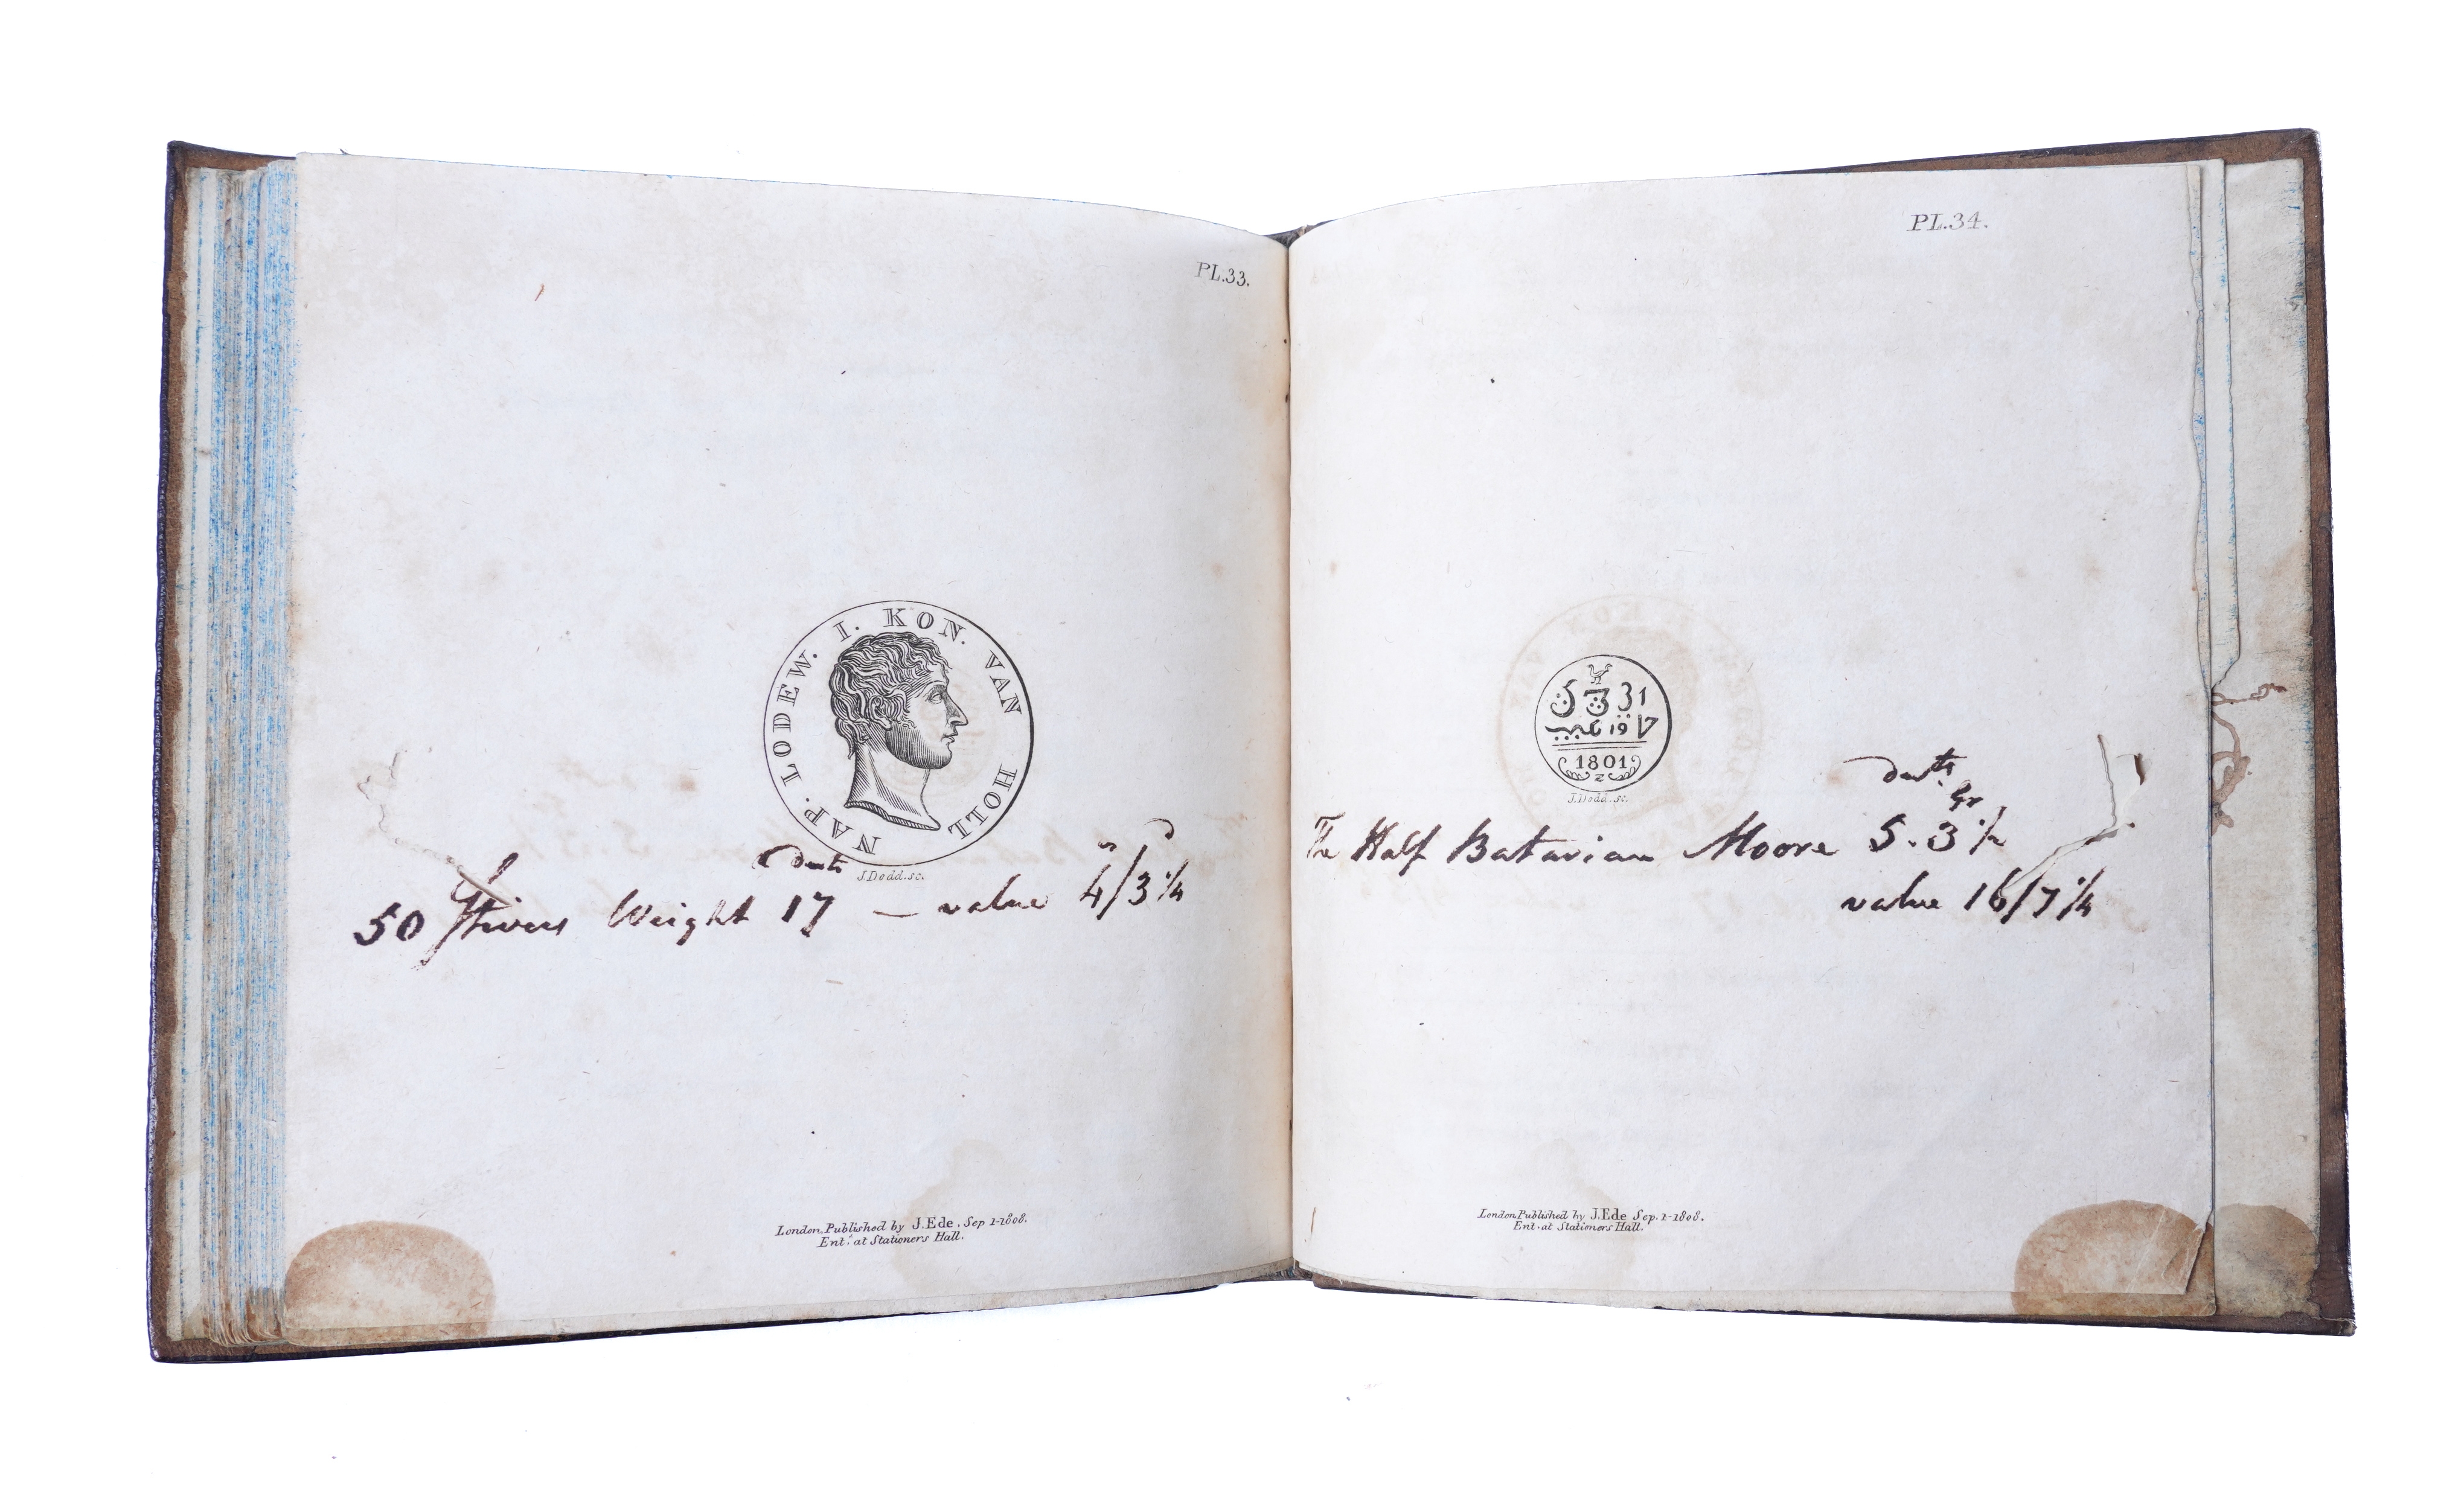 PL.33.
NAP. LODEW. I. KON. VAN HOLL
J.Dodd.sc.
dwts
50 Stivers Weight 17 — value 4/3¼
London, Published by J.Ede. Sep 1-1808.
Ent.^d at Stationers Hall.
PL.34.
1801
Z
J.Dodd.sc.
dwts. Gr
The Half Batavian Moore 5.3½
value 16/7¼
London Published by J.Ede Sep. 1-1808.
Ent. at Stationers Hall.